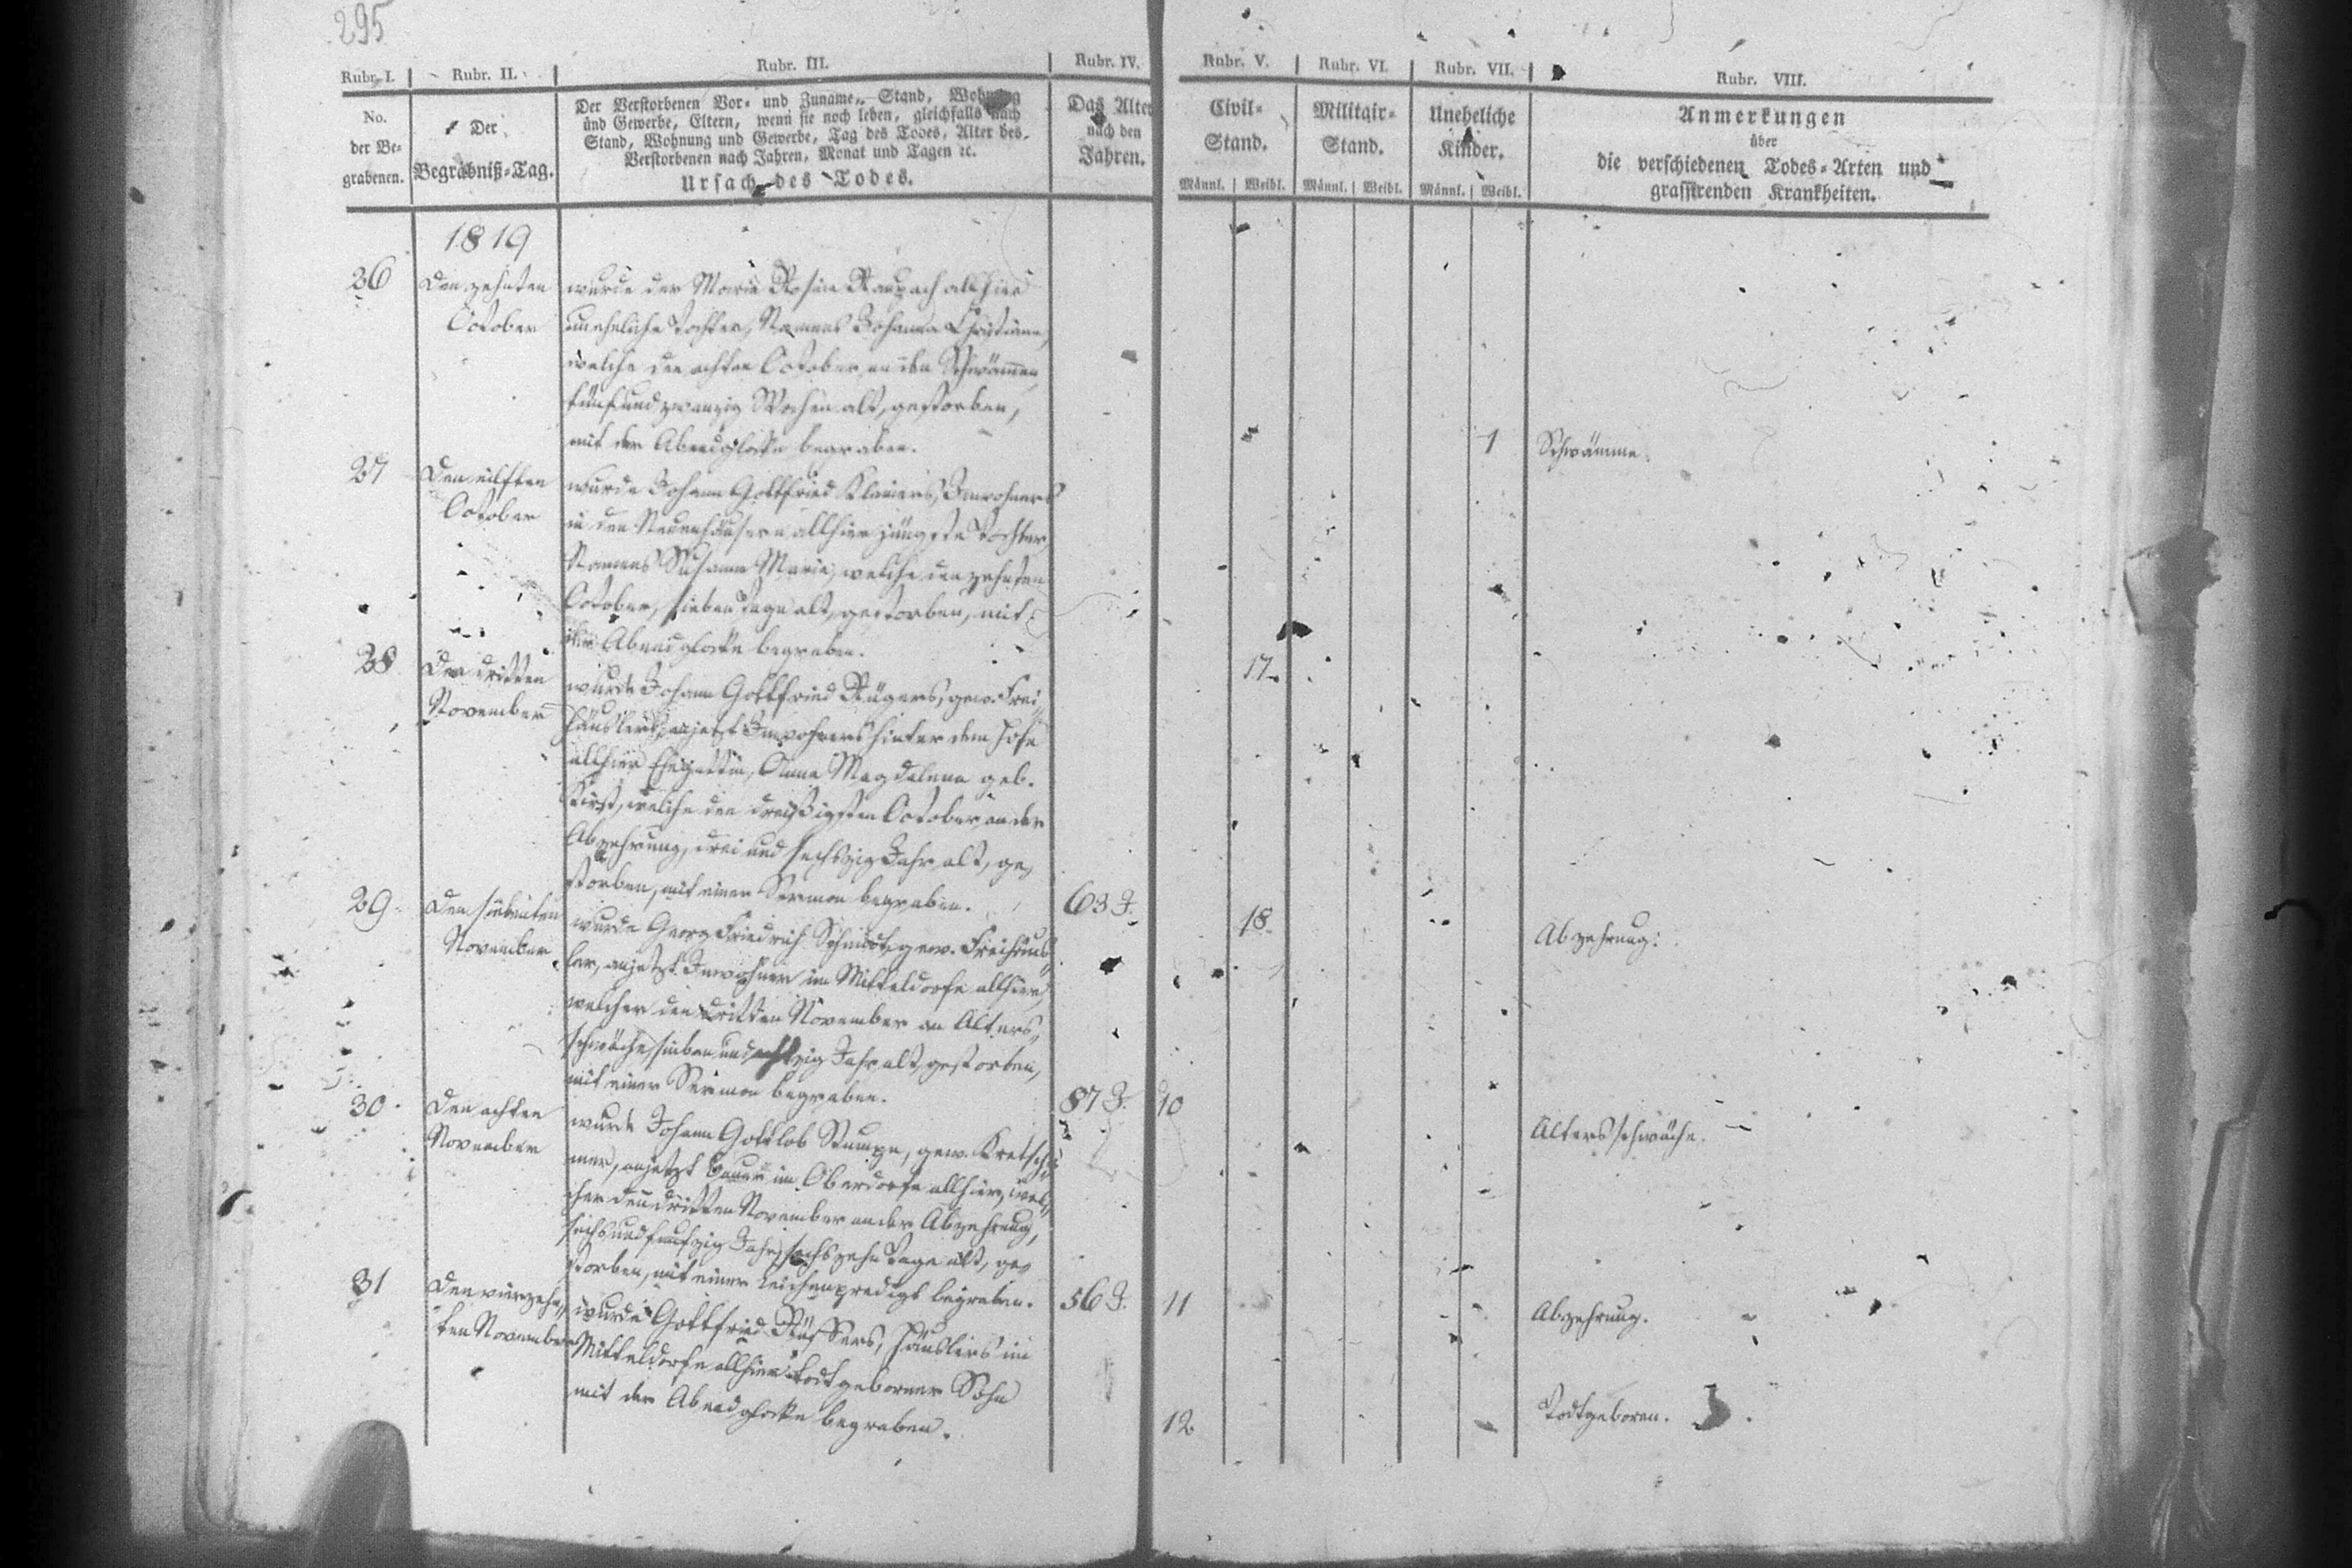 295
Rubr. I. Rubr. II. Rubr. III. Rubr. IV. Rubr. V. Rubr. VI. Rubr. VII. Rubr. VIII.
No.
der Be-
grabenen.
Der
Begräbniß-Tag.
Der Verstorbenen Vor- und Zuname, Stand, Wohnung
und Gewerbe, Eltern, wenn sie noch leben, gleichfalls nach
Stand, Wohnung und Gewerbe, Tag des Todes, Alter des
Verstorbenen nach Jahren, Monat und Tagen ꝛc.
Ursach des Todes.
Das Alter
nach den
Jahren.
Civil-
Stand.
Männl. Weibl.
Militair-
Stand.
Männl. Weibl.
Uneheliche
Kinder.
Männl. Weibl.
Anmerkungen
über
die verschiedenen Todes-Arten und
grassirenden Krankheiten.
1819
26
Den zehnten
October
wurde der Marie Rosine Raupach allhier
uneheliche Tochter, Namens Johanna Christiane,
welche den achten October an den Schwämmen
fünf und zwanzig Wochen alt, gestorben,
mit der Abendglocke begraben.
1
Schwämme.
27
Den eilften
October
wurde Johann Gottfried Inwohners
in den Neuenhäusern allhier jüngste Tochter
Namens Susanna Marie, welche den zehnten
October, sieben Tage alt, gestorben, mit
der Abendglocke begraben.
17.
28
Den dritten
November
wurde Johann Gottfried Rügers, gew. Frei-
häuslers, anjetzt Inwohners hinter dem Hofe
allhier Ehegattin, Anna Magdalena geb.
welche den dreißigsten October an der
Abzehrung, drei und sechszig Jahr alt, ge-
storben, mit einer Sermon begraben.
63 J.
18.
Abzehrung.
29.
Den siebenten
November
wurde Georg Friedrich Schmidt, gew. Freihäus-
ler, anjetzt Inwohner im Mitteldorfe allhier,
welcher den dritten November an Alters-
schwäche, sieben und achtzig Jahr alt, gestorben,
mit einer Sermon begraben.
87 J.
10
Altersschwäche.
30.
Den achten
November
wurde Johann Gottlob Stumpe, gew. Kretsch-
mer, anjetzt Bauer im Oberdorfe allhier, wel-
cher den dritten November an der Abzehrung,
sechs und funfzig Jahr, sechszehn Tage alt, ge-
storben, mit einer Leichenpredigt begraben.
56 J.
11
Abzehrung.
31
Den vierzehn-
ten November
wurde Gottfried Häuslers im
Mitteldorfe allhier todtgeborner Sohn
mit der Abendglocke begraben.
12
Todtgeboren.